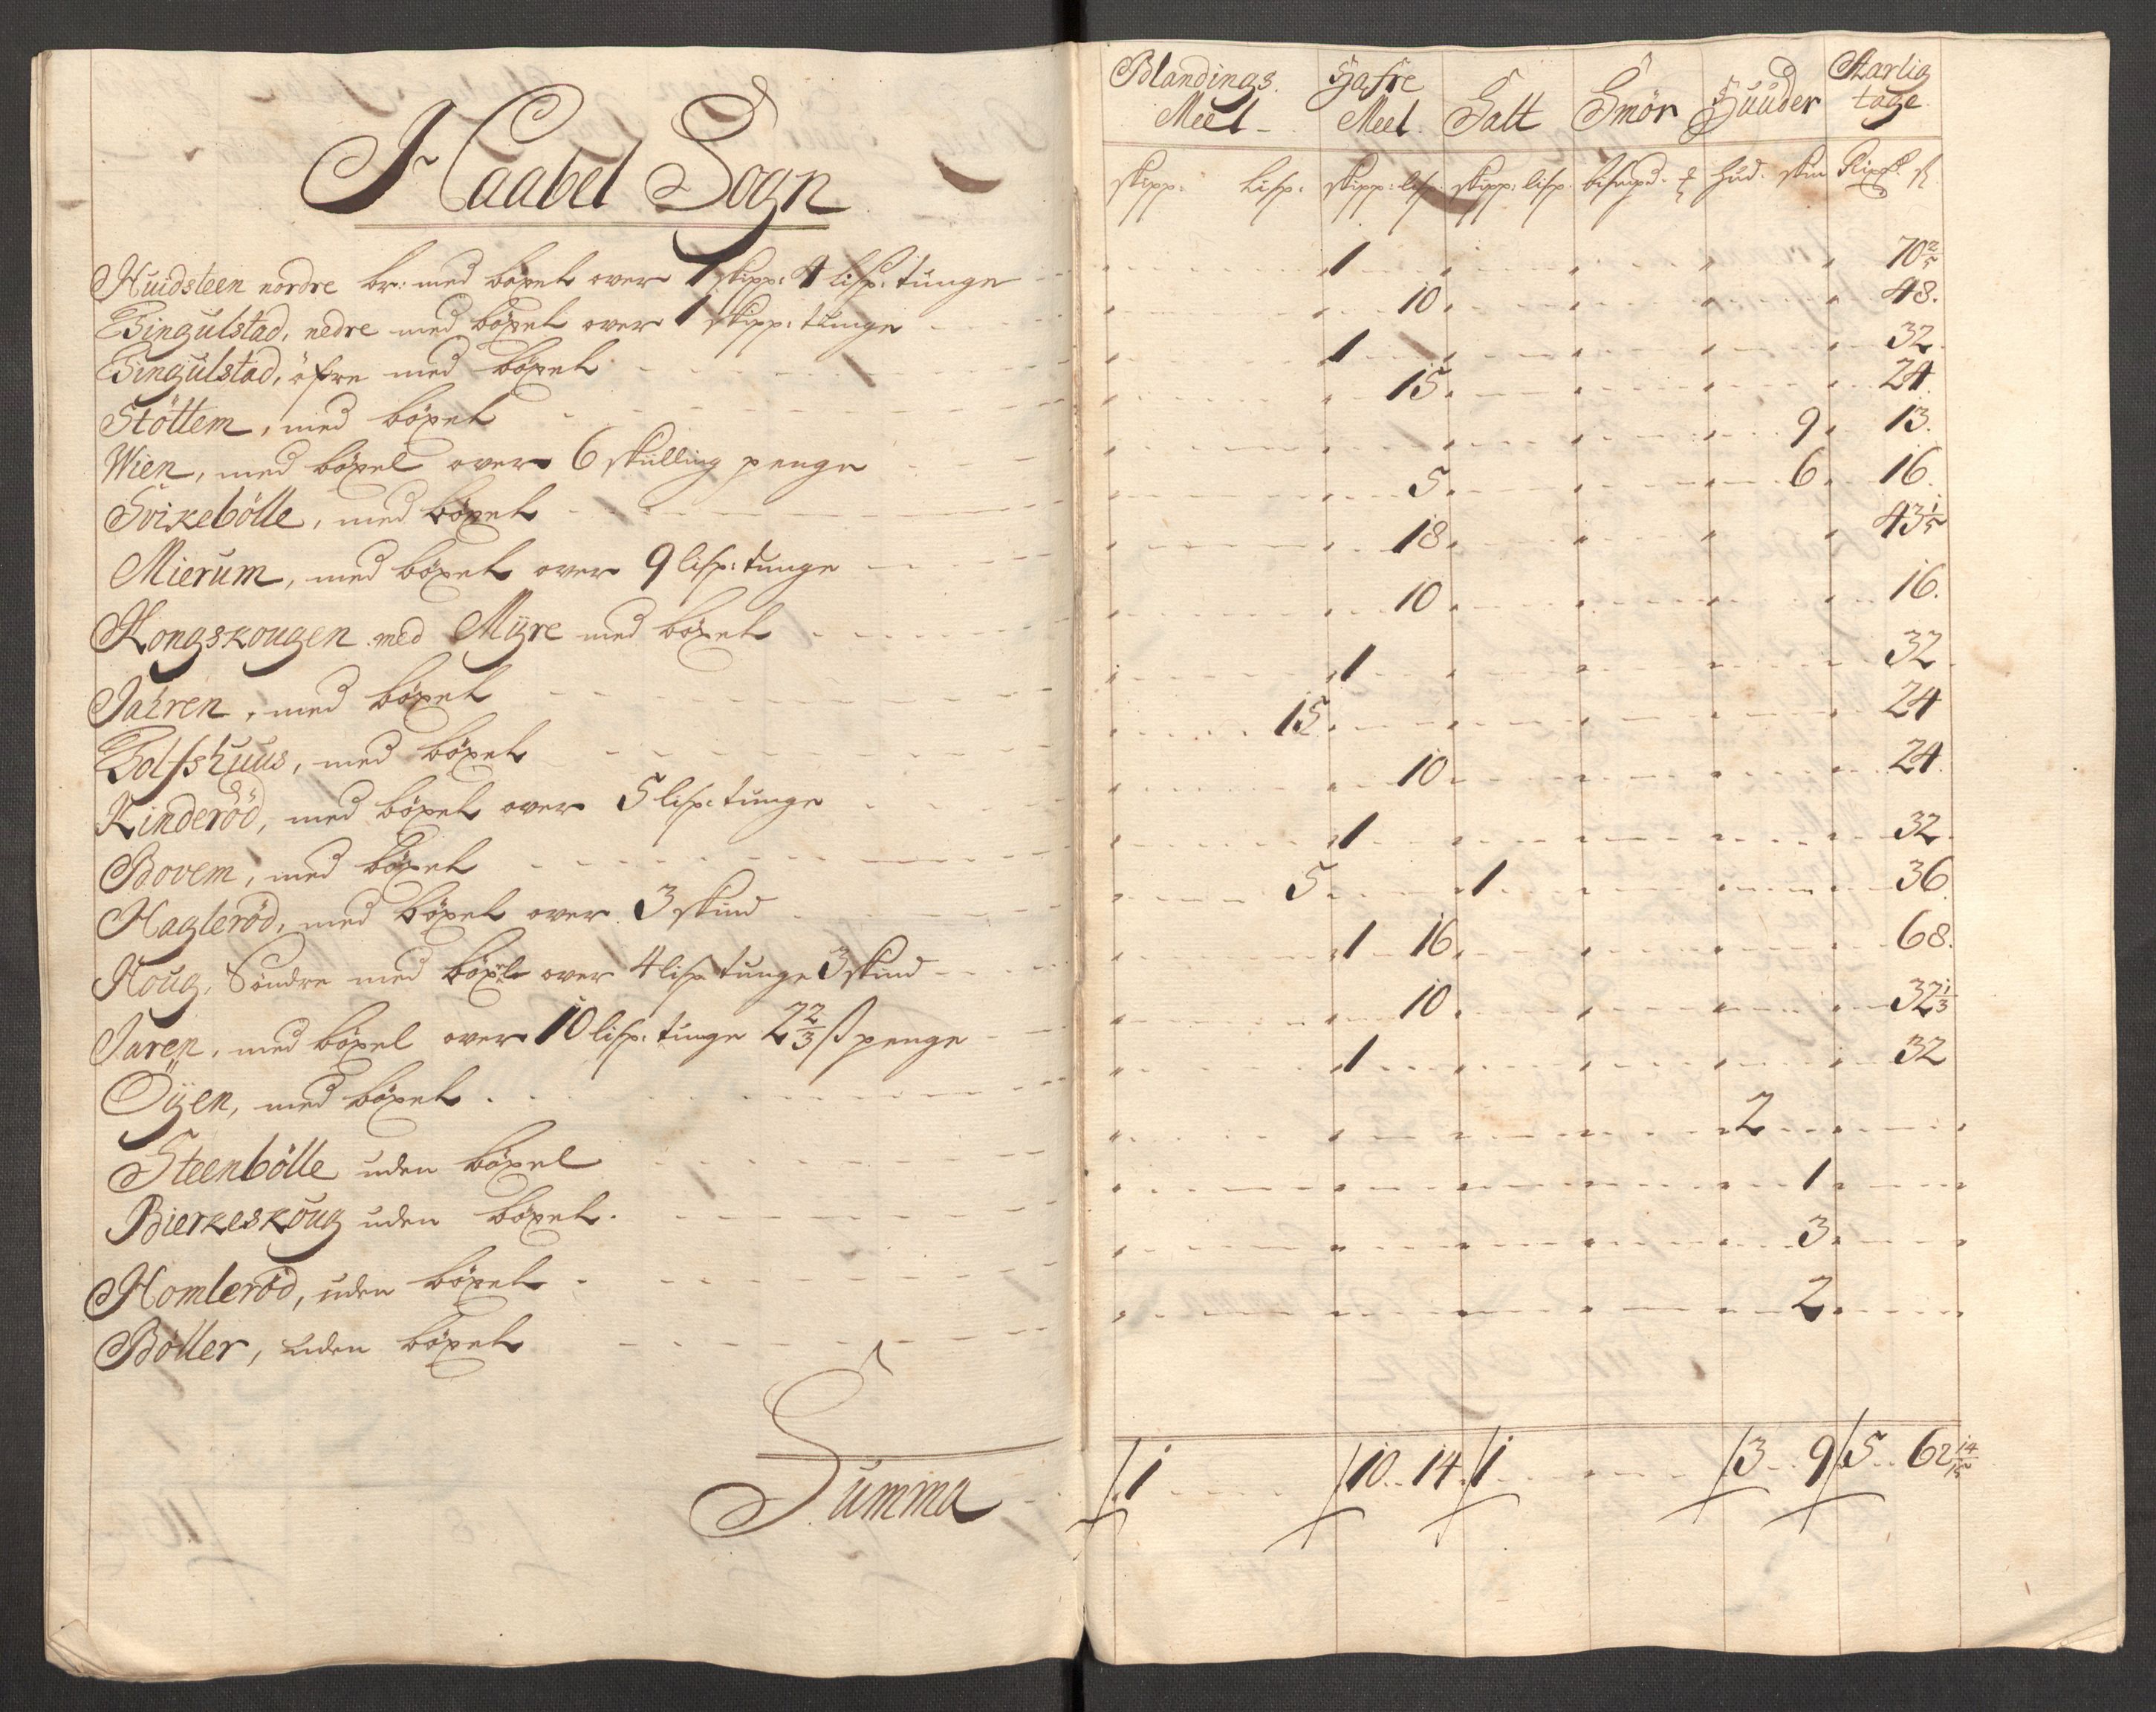 I Haabel Sogn
Huidsteen nordre br: med böxel over 1 skipp: 4 lisp: tunge
Tingulstad, nedre med böxel over 1 skipp: tunge
Tingulstad, öfre med böxel
Stöttem, med böxel
Wien, med böxel over 6 skilling penge
Svikebölle, med böxel
Mierum, med böxel over 9 lisp: tunge
Kongskougen med Myre med böxel
Jahren, med böxel
Tolfshuus, med böxel
Kinderöd, med böxel over 5 lisp: tunge
Bovem, med böxel
Hagleröd, med böxel over 3 skind
Houg, Söndre med böxel over 4 lisp tunge 3 skind
Jaren, med böxel over 10 lisp: tunge 2 2/3 ß penge
Öyen, med böxel
Steenbölle uden böxel
Bierkeskoug uden böxel
Homleröd, uden böxel
Böller, uden böxel
Summa
Blandings Meel Hafre Meel Salt Smör Huuder Aarlig tage
skipp: lisp: skipp: lisp: skipp: lisp: bismpd. hud. skin
1 70 2/5
10 48.
1 32
15 24
9 13.
5 6 16
18 43 1/5
10 16.
1 32
15 24
10 24
1 32
5 1 36
1 16 68.
10 32 1/3
1 32
2
1
3
2
1 10 14 1 3 9 5 62 14/15